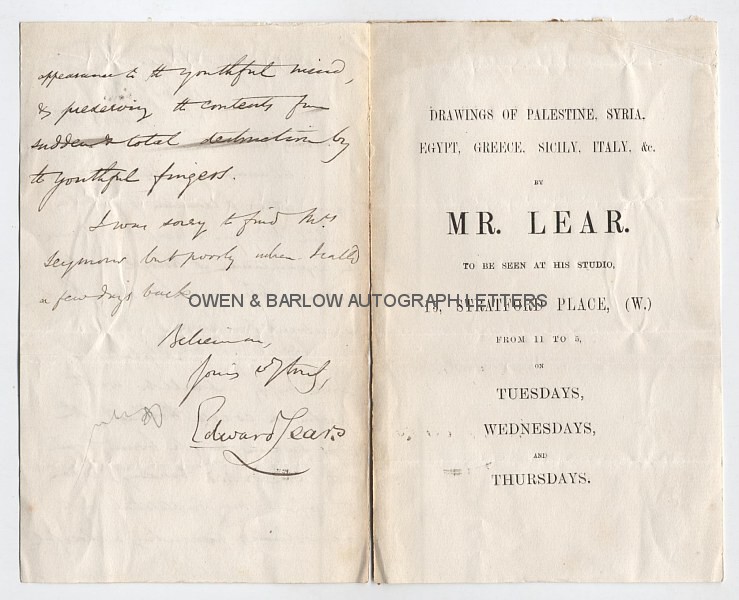 appearance to the youthful mind,
& preserving the contents from
sudden & total destruction by
the youthful fingers.
I was sorry to find Mrs
Seymour but poorly when I called
a few days back.
Believe me,
Yours
Edward Lear.
DRAWINGS OF PALESTINE, SYRIA,
EGYPT, GREECE, SICILY, ITALY, &c.
BY
MR. LEAR.
TO BE SEEN AT HIS STUDIO,
15, STRATFORD PLACE, (W.)
FROM 11 TO 5,
ON
TUESDAYS,
WEDNESDAYS,
AND
THURSDAYS.
OWEN & BARLOW AUTOGRAPH LETTERS